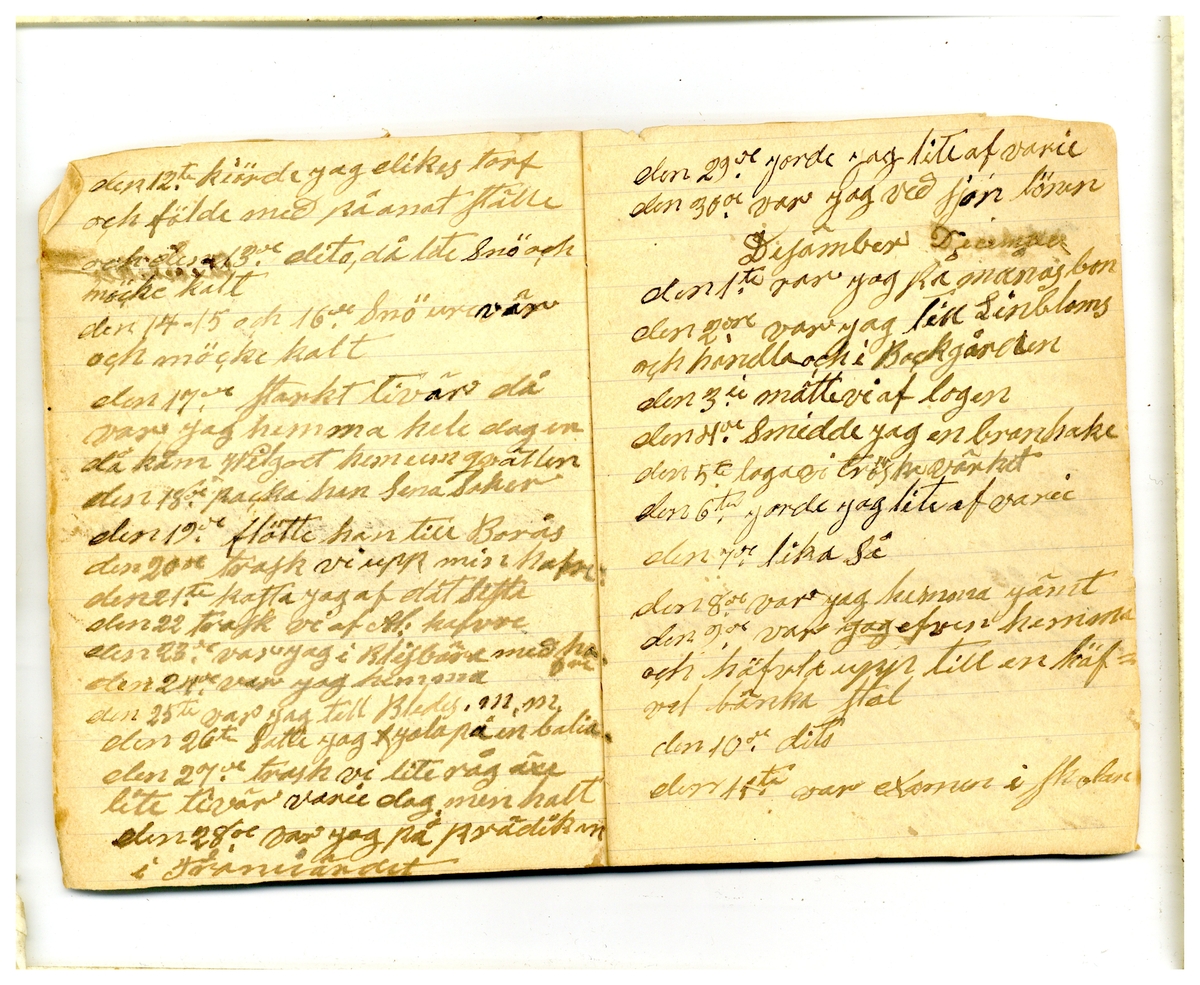 den 12te kiörde jag elikes torf
och földe med på anat ställe
och den 13de dito, då lite Snö och
möcke kalt
den 14-15 och 16de Snö ure vär
och möcke kalt
den 17de starkt tivär då
var jag hemma hele dagen
då kåm hem qvällen
den 18de packa han Sena Saker
den 19de flötte han till Borås
den 20de trask vi upp min hafre
den 21te kasta jag af dät Sista
den 22 trask vi af M. hafvre
den 23de var jag i med ha
den 24de var jag hemma fvre
den 25te var jag till m. m.
den 26te Satte jag på en balia
den 27de trask vi lite råg äxe
lite tivär varie dag, men kalt
den 28de var jag på prädikan
i
den 29de jorde jag lite af varie
den 30de var jag ved sjön
Desämber Decimper
den 1te var jag på månasbön
den 2dre var jag till Linbloms
och handla och i Backgården
den 3ie mätte vi af logen
den 4de Smidde jag en branhake
den 5te laga vi tröskevärket
den 6te jorde jag lite af varie
den 7de lika Så
den 8de var jag hemma jämt
den 9de var jag efven hemma
och häfvla upp till en häf=
vel bänka stol
den 10de dito
den 11te var examen i skolan